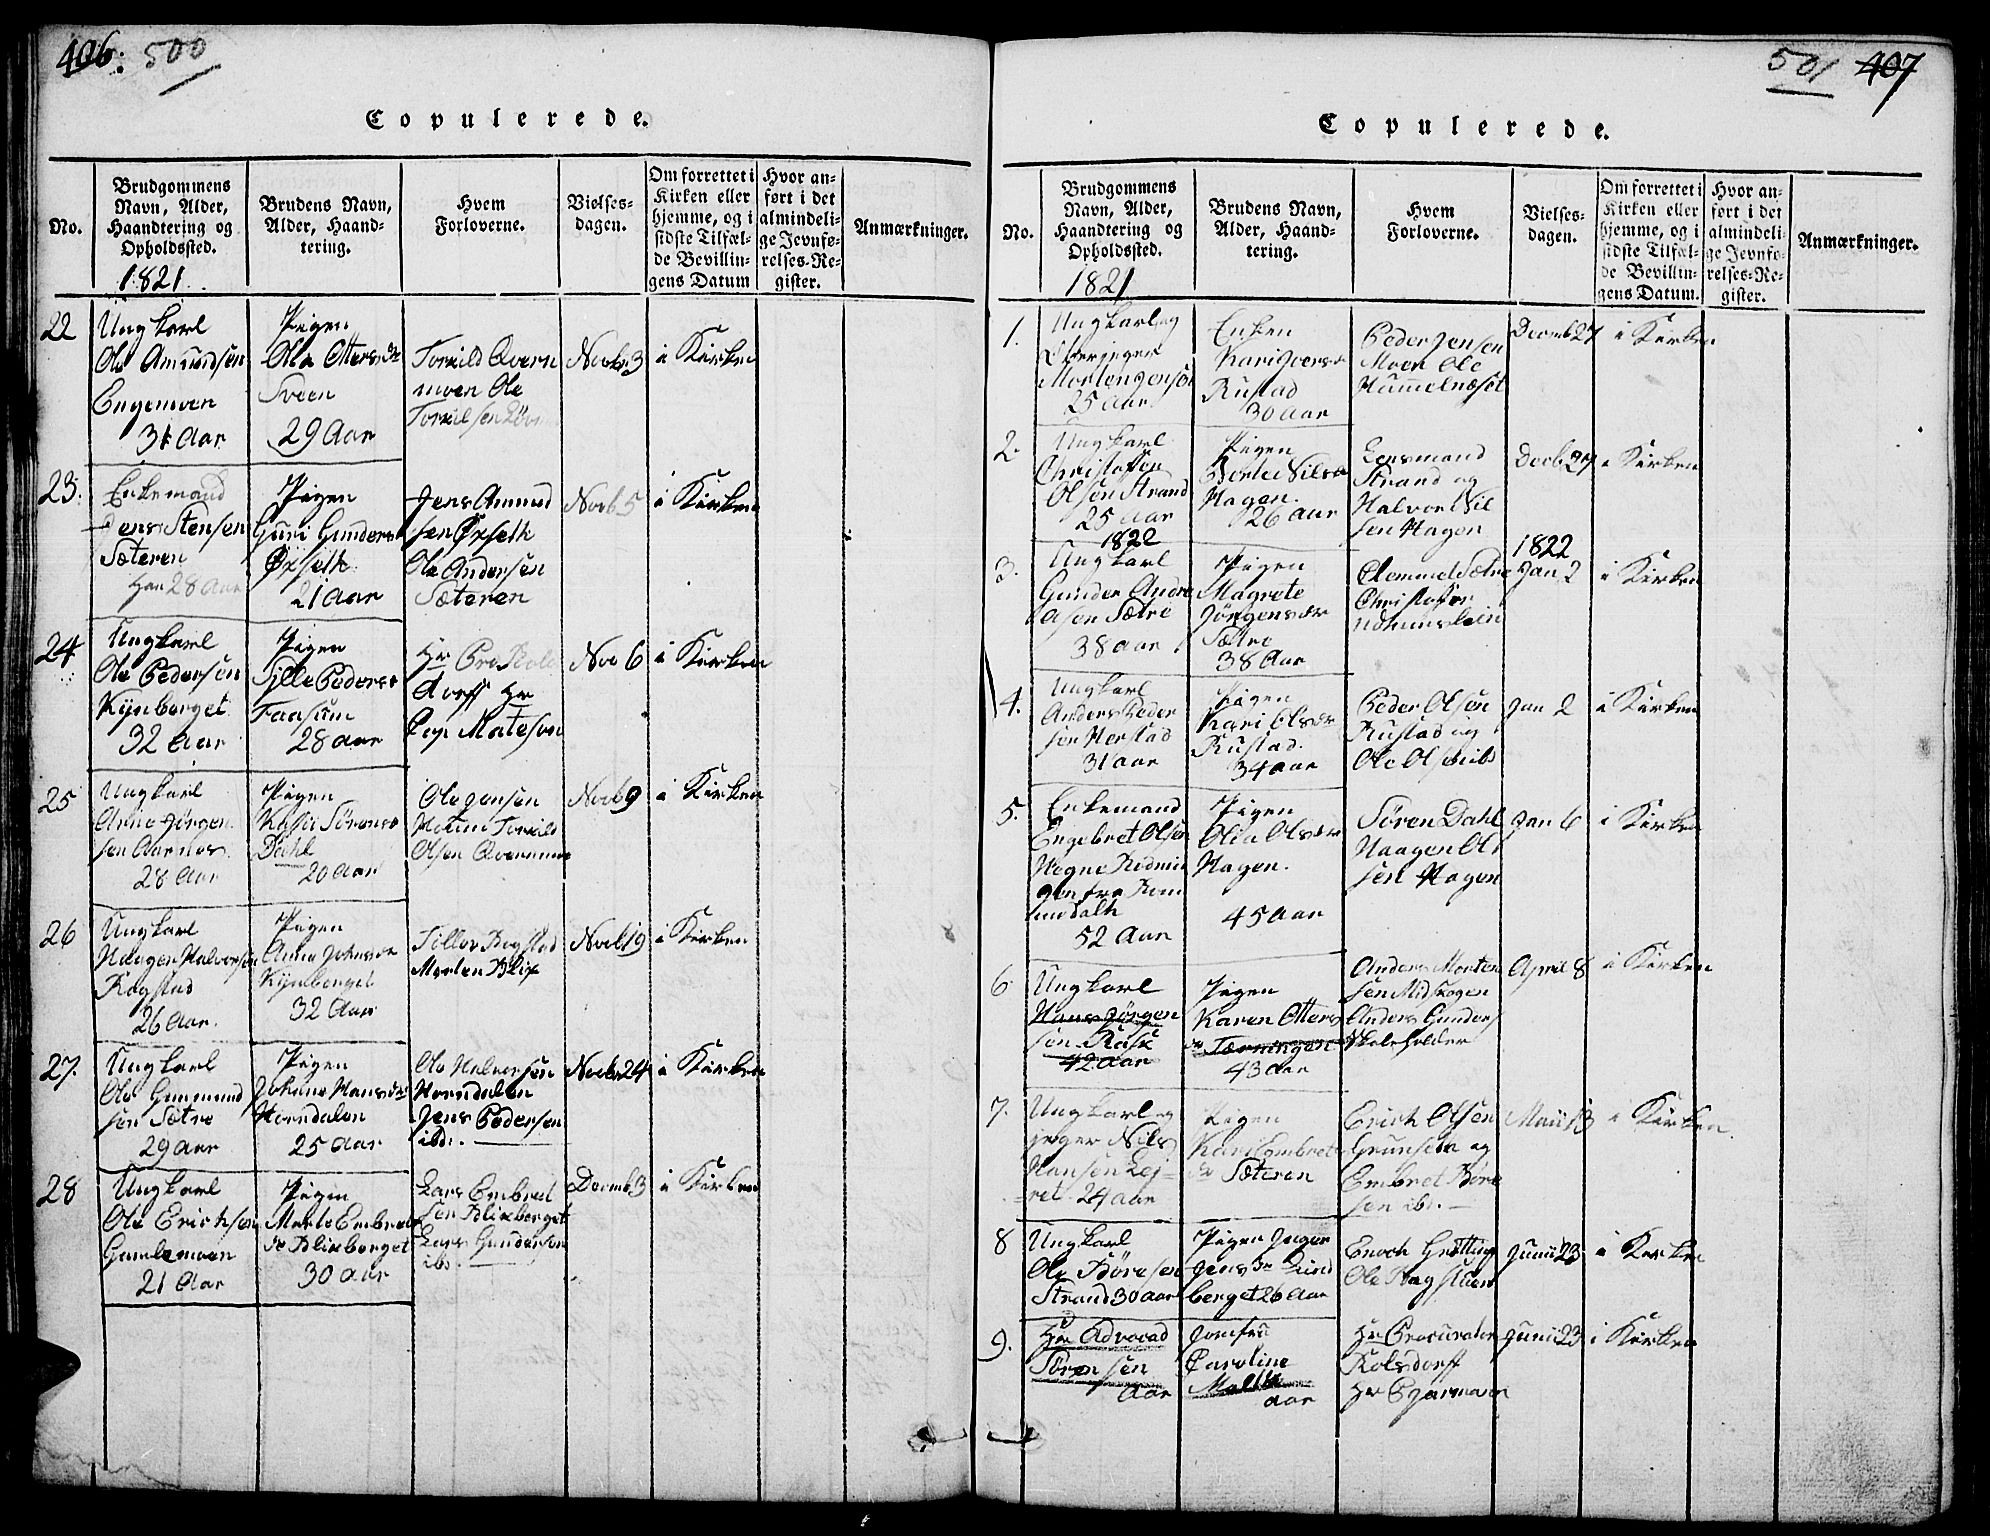 406: 500
Copulerede.
No.
Brudgommens
Navn, Alder,
Haandtering og
Opholdssted.
1821
Brudens Navn,
Alder, Haand-
tering.
Hvem
Forloverne.
Vielses-
dagen.
Om forrettet i
Kirken eller
hjemme, og i
sidste Tilfæl-
de Bevillin-
gens Datum
Hvor an-
ført i det
almindeli-
ge Jevnfø-
relses-Re-
gister.
Anmærkninger.
22
Ungkarl
Ole Amundsen
Engemoen
31 Aar
Pigen
Ola Ottersdr
Sveen
29 Aar
Torkild Qvern
moen Ole
Torkilsen
Novbr 3
i Kirken
23.
Enkemand
Jens Stensen
Sæteren
Han 28 Aar
Pigen
Guri Gunders
Øxseth
21 Aar
Jens Amund
sen Øxseth
Ole Andersen
Sæteren
Novb 5
i Kirken
24
Ungkarl
Ole Pedersen
Kynberget
32 Aar
Pigen
Sille Peders
Faasum
28 aar
Hr
dorff Hr
Cap Mateson
Nov 6
i Kirken
25
Ungkarl
Arne Jørgen
sen Aarnes
28 Aar
Pigen
Kasti Sørens
Dahl
20 Aar
Ole Jensen
Moeni Torkild
Olsen Qvernmo
Novb 9
i Kirken
26
Ungkarl
Haagen Halvorsen
Rogstad
26 Aar.
Pigen
Anne Johnsdr
Kynberget
32 Aar
Tillov Rogstad
Morten Blix
Novb 19
i Kirken
27.
Ungkarl
Ole Gunmund
sen Sætre
29 Aar
Pigen
Johane Hansdr
Horndalen
25 Aar
Ole Halvorsen
Horndalen
Jens Pedersen
ibd.
Novbr 24
i Kirken
28
Ungkarl
Ole Erichsen
Gamlemoen
21 Aar
Pigen
Marte Embret
dr Blixberget
30 aar
Lars Embret
sen Blixberget
Lars Gundersen
ibd.
Decmb 3
i Kirken
501 407
Copulerede.
No.
Brudgommens
Navn, Alder,
Haandtering og
Opholdssted.
1821
Brudens Navn,
Alder, Haand-
tering.
Hvem
Forloverne.
Vielses-
dagen.
Om forrettet i
Kirken eller
hjemme, og i
sidste Tilfæl-
de Bevillin-
gens Datum.
Hvor an-
ført i det
almindeli-
ge Jevnfø-
relses-Re-
gister.
Anmærkninger.
1.
Ungkarl og
Morten Jensen
25 Aar
Enken
Kari Iversdr
Rustad
30 Aar
Peder Jensen
Moen Ole
Hummelnæset
Decmb 27
i Kirken
2.
Ungkarl
Christoffen
Olsen Strand
25 aar
Pigen
Berte Nilsdr
Hagen.
26 aar
Lensmand
Strand og
Halvor Nil
sen Hagen
Decb 27
i Kirken
3.
1822
Ungkarl
Gunder Andre
asen Sætre
38 aar
Pigen
Magrete
Jørgensdr
Sætre
38 Aar
Clemmet Sætre
Christoffer
1822
Jan 2
i Kirken
4.
Ungkarl
Anders Peder
sen Herstad
31 aar
Pigen
Kari Olsdr
Rustad.
34 aar
Peder Olsen
Rustad og
Ole Olsen ibd
Jan 2
i Kirken
5.
Enkemand
Engebret Olsen
Hegne
gen fra Rom
medalh
52 Aar
Pigen
Olia Olsdr
Hagen.
45 aar
Søren Dahl
Haagen Ol
sen Hagen
Jan 6
i Kirken
6
Ungkarl
Hans Jørgen
sen Rask
42 aar
Pigen
Karen Otters
dr Tærningen
43 aar
Anders Morten
sen Midskogen
Anders Gunders
Skoleholder
April 8
i Kirken
7.
Ungkarl og
jæger Nils
Hansen Lej-
ret 24 aar
Pigen
Kari Embrets
dr Sæteren
Erich Olsen
Grunseta og
Embret Børe
sen ibd.
Maii 13
i Kirken.
8
Ungkarl
Ole Børesen
Strand 30 aar
Pigen Inger
Jens dr Lind
berget 26 Aar
Enoch Grøtting
Ole Hagstuen
Junii 23
i Kirken
9.
Hr Advocad
Sørensen
Aar
Jomfru
Caroline
aar
Hr Procurator
Rolsdorff
Hr Bjarmann
Junii 23
i Kirken